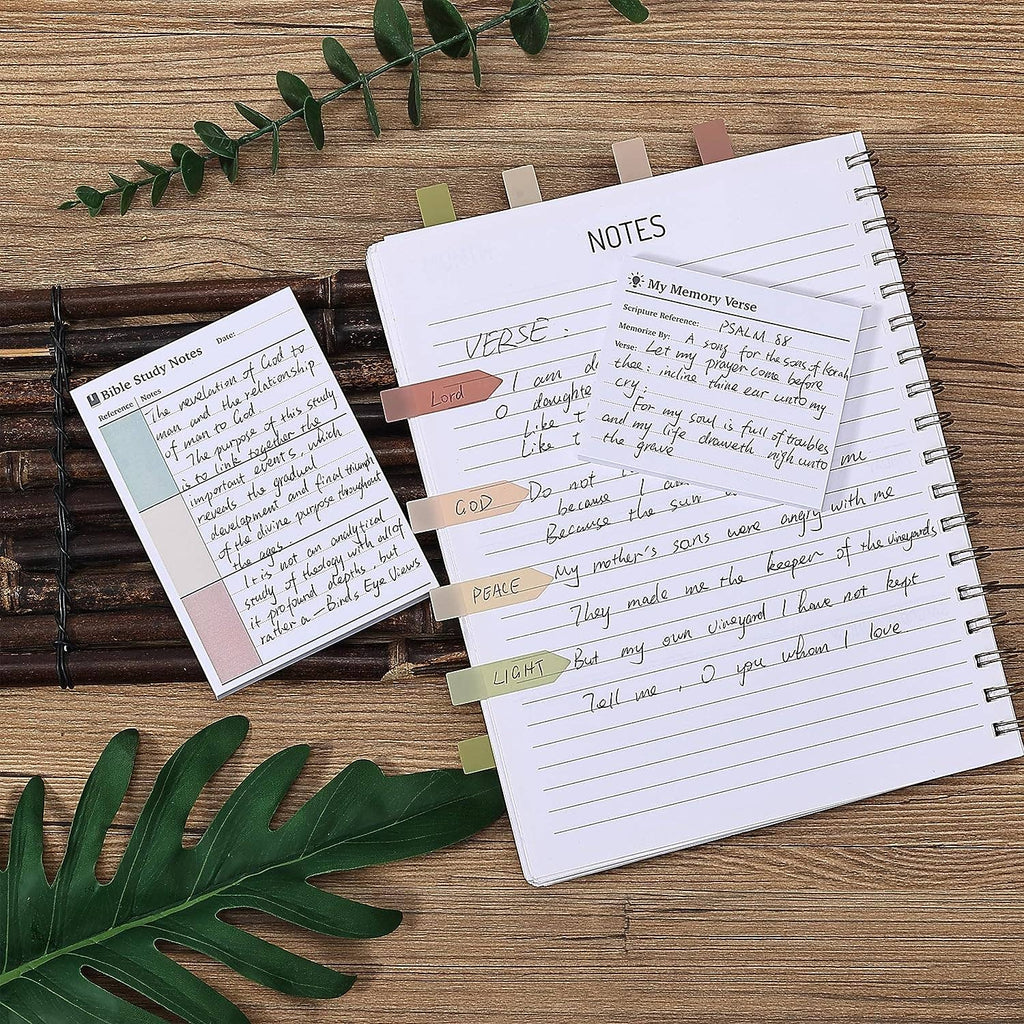 Bible Study Notes Date:
Reference Notes
The revelation of God to
man and the relationship
of man to God
The purpose of this study
is to link together the
important events, which
reveals the gradual
development and final triumph
of the divine purpose throughout
the ages.
It is not an analytical
study of theology with all of
it profound depths, but
rather a — Birds Eye Views
NOTES
VERSE.
I am
O daughte
Like t
Like t
Do not me
because I am
Because the sun
My mother's sons were angry with me
They made me the keeper of the vineyards
But my own vineyard I have not kept
Tell me, O you whom I love
My Memory Verse
Scripture Reference: PSALM 88
Memorize By: A song for the sons of Korah
Verse: Let my prayer come before
thee: incline thine ear unto my
cry;
For my soul is full of troubles
and my life draweth nigh unto
the grave
Lord
GOD
PEACE
LIGHT